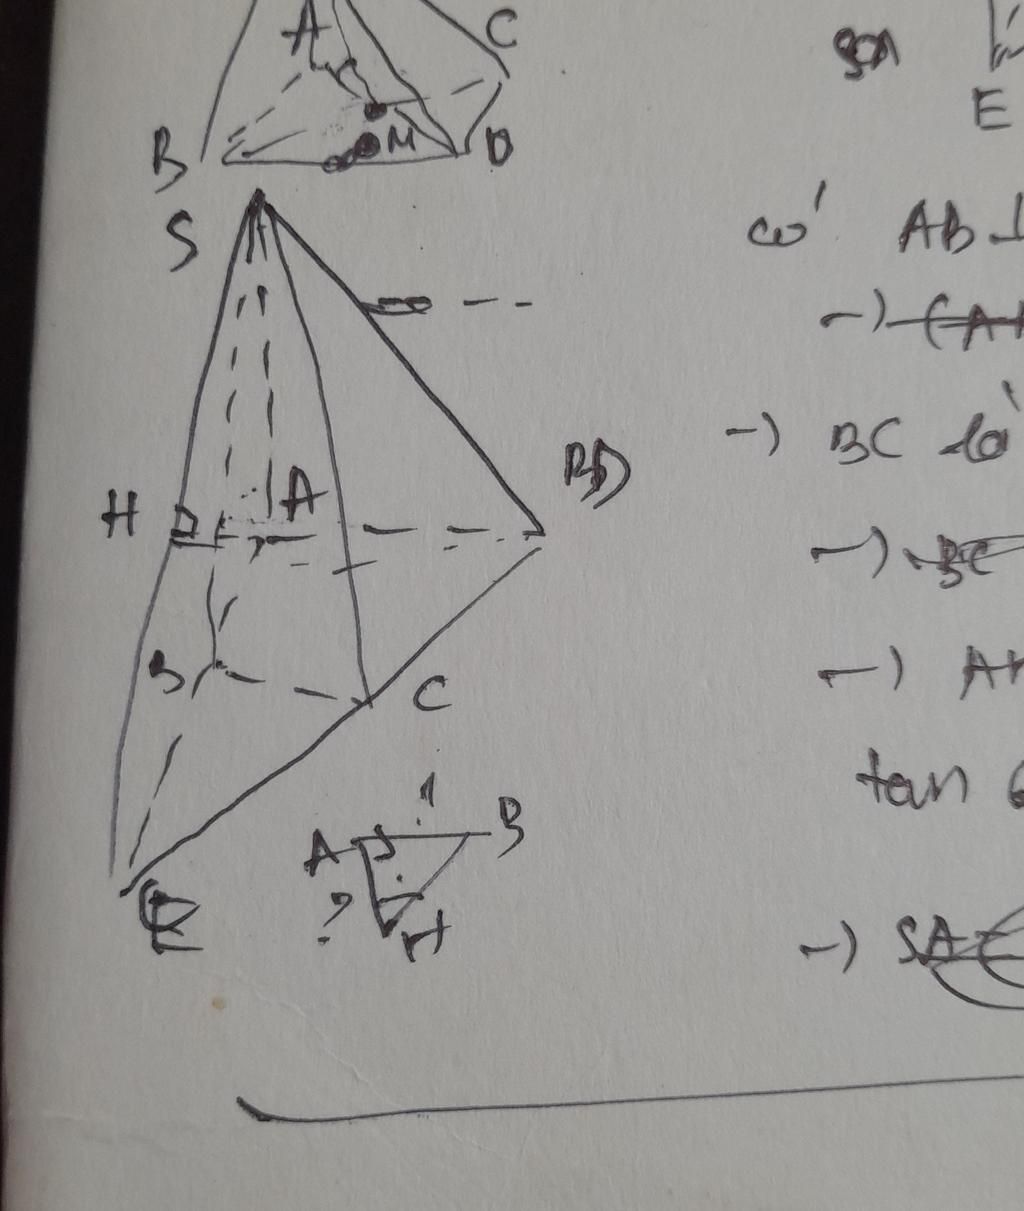 A
C
B
M
D
E
S
có AB ⊥
-)
-) BC là
H
A
D
-) BC
B
C
-) AH
tan 6
1
A
B
?
H
E
-) SA =